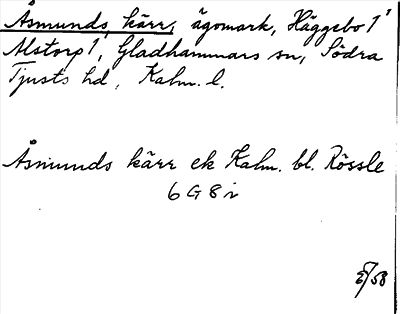 Åsmunds kärr, ägomark, Häggebo 1²
Alstorp 1¹, Gladhammars sn, Södra
Tjusts hd, Kalm. l.
Åsmunds kärr ek Kalm. bl. Rössle
6 G 8 i
/58